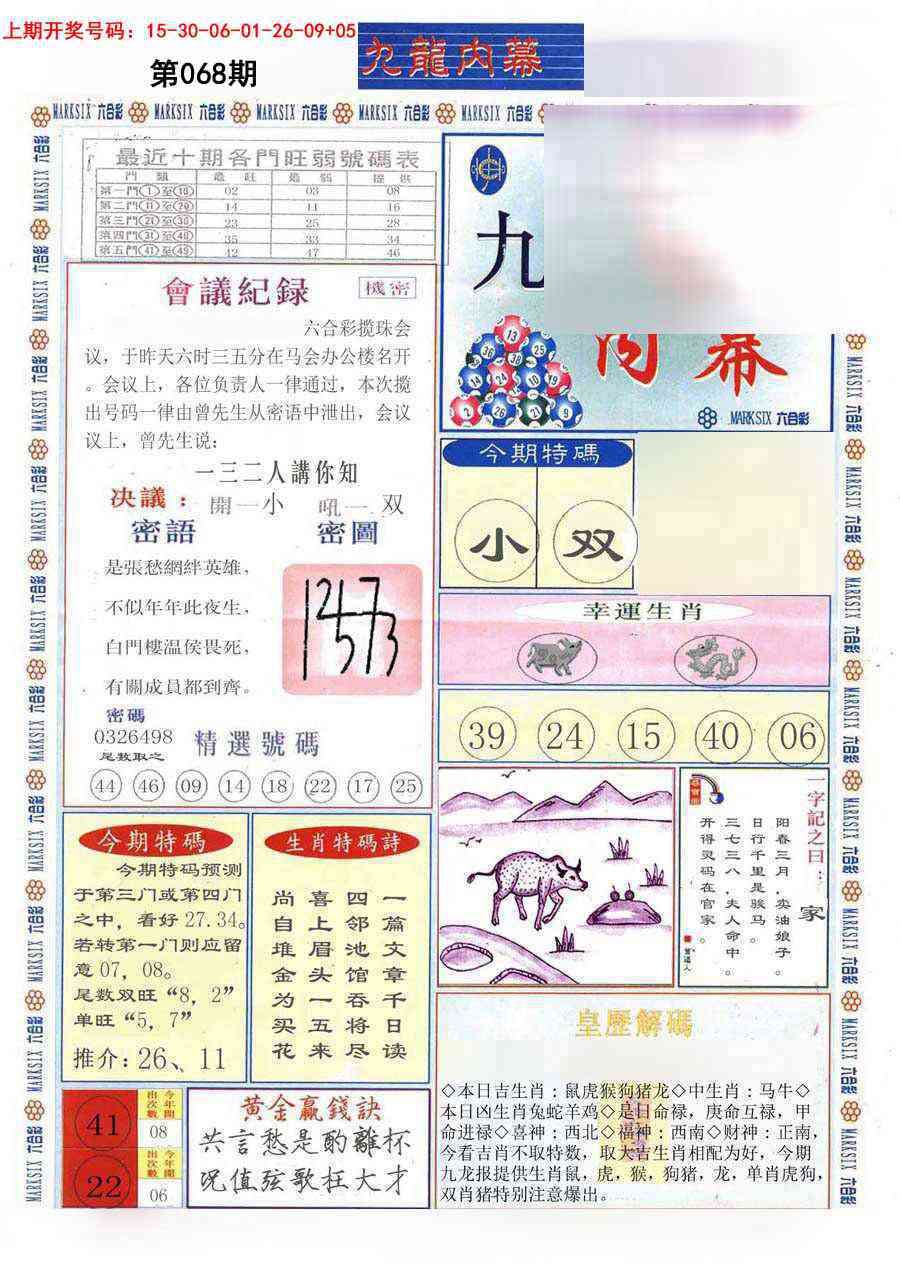 上期开奖号码：15-30-06-01-26-09+05
第068期
九龍内幕
MARKSIX 六合彩 MARKSIX 六合彩 MARKSIX 六合彩 MARKSIX 六合彩 MARKSIX 六合彩
最近十期各門旺弱號碼表
門 類 最旺 最弱 提供
第一門①至⑩ 02 03 08
第二門⑪至⑳ 14 11 16
第三門㉑至㉚ 23 25 28
第四門㉛至㊵ 35 33 34
第五門㊶至㊾ 42 47 46
會議紀録
機密
六合彩揽珠会
议，于昨天六时三五分在马会办公楼名开
。会议上，各位负责人一律通过，本次揽
出号码一律由曾先生从密语中泄出，会议
议上，曾先生说：
一三二人講你知
决議：開一小 吼一双
密語
是張愁網絆英雄，
不似年年此夜生，
白門樓温侯畏死，
有關成員都到齊。
密圖
密碼
0326498
尾数取之
精選號碼
44 46 09 14 18 22 17 25
九
内幕
13
36 38 25
24 10 19
2 26 21 9
MARKSIX 六合彩
今期特碼
小 双
幸運生肖
39 24 15 40 06
一字記之曰：家
阳春三月，卖油娘子。
日行千里是骏马。
三七三八，夫人命中。
开得灵码在官家。
今期特碼
今期特码预测
于第三门或第四门
之中，看好27.34。
若转第一门则应留
意07，08。
尾数双旺“8，2”
单旺“5，7”
推介：26、11
生肖特碼詩
一篇文章千日读
四邻池馆吞将尽
喜上眉头一五来
尚自堆金为买花
41 今年開出次數 08
22 今年開出次數 06
黄金赢錢訣
共言愁是酌離杯
况值弦歌枉大才
皇歷解碼
◇本日吉生肖：鼠虎猴狗猪龙◇中生肖：马牛◇
本日凶生肖兔蛇羊鸡◇是日命禄，庚命互禄，甲
命进禄◇喜神：西北◇福神：西南◇财神：正南，
今看吉肖不取特数，取大吉生肖相配为好，今期
九龙报提供生肖鼠，虎，猴，狗猪，龙，单肖虎狗，
双肖猪特别注意爆出。